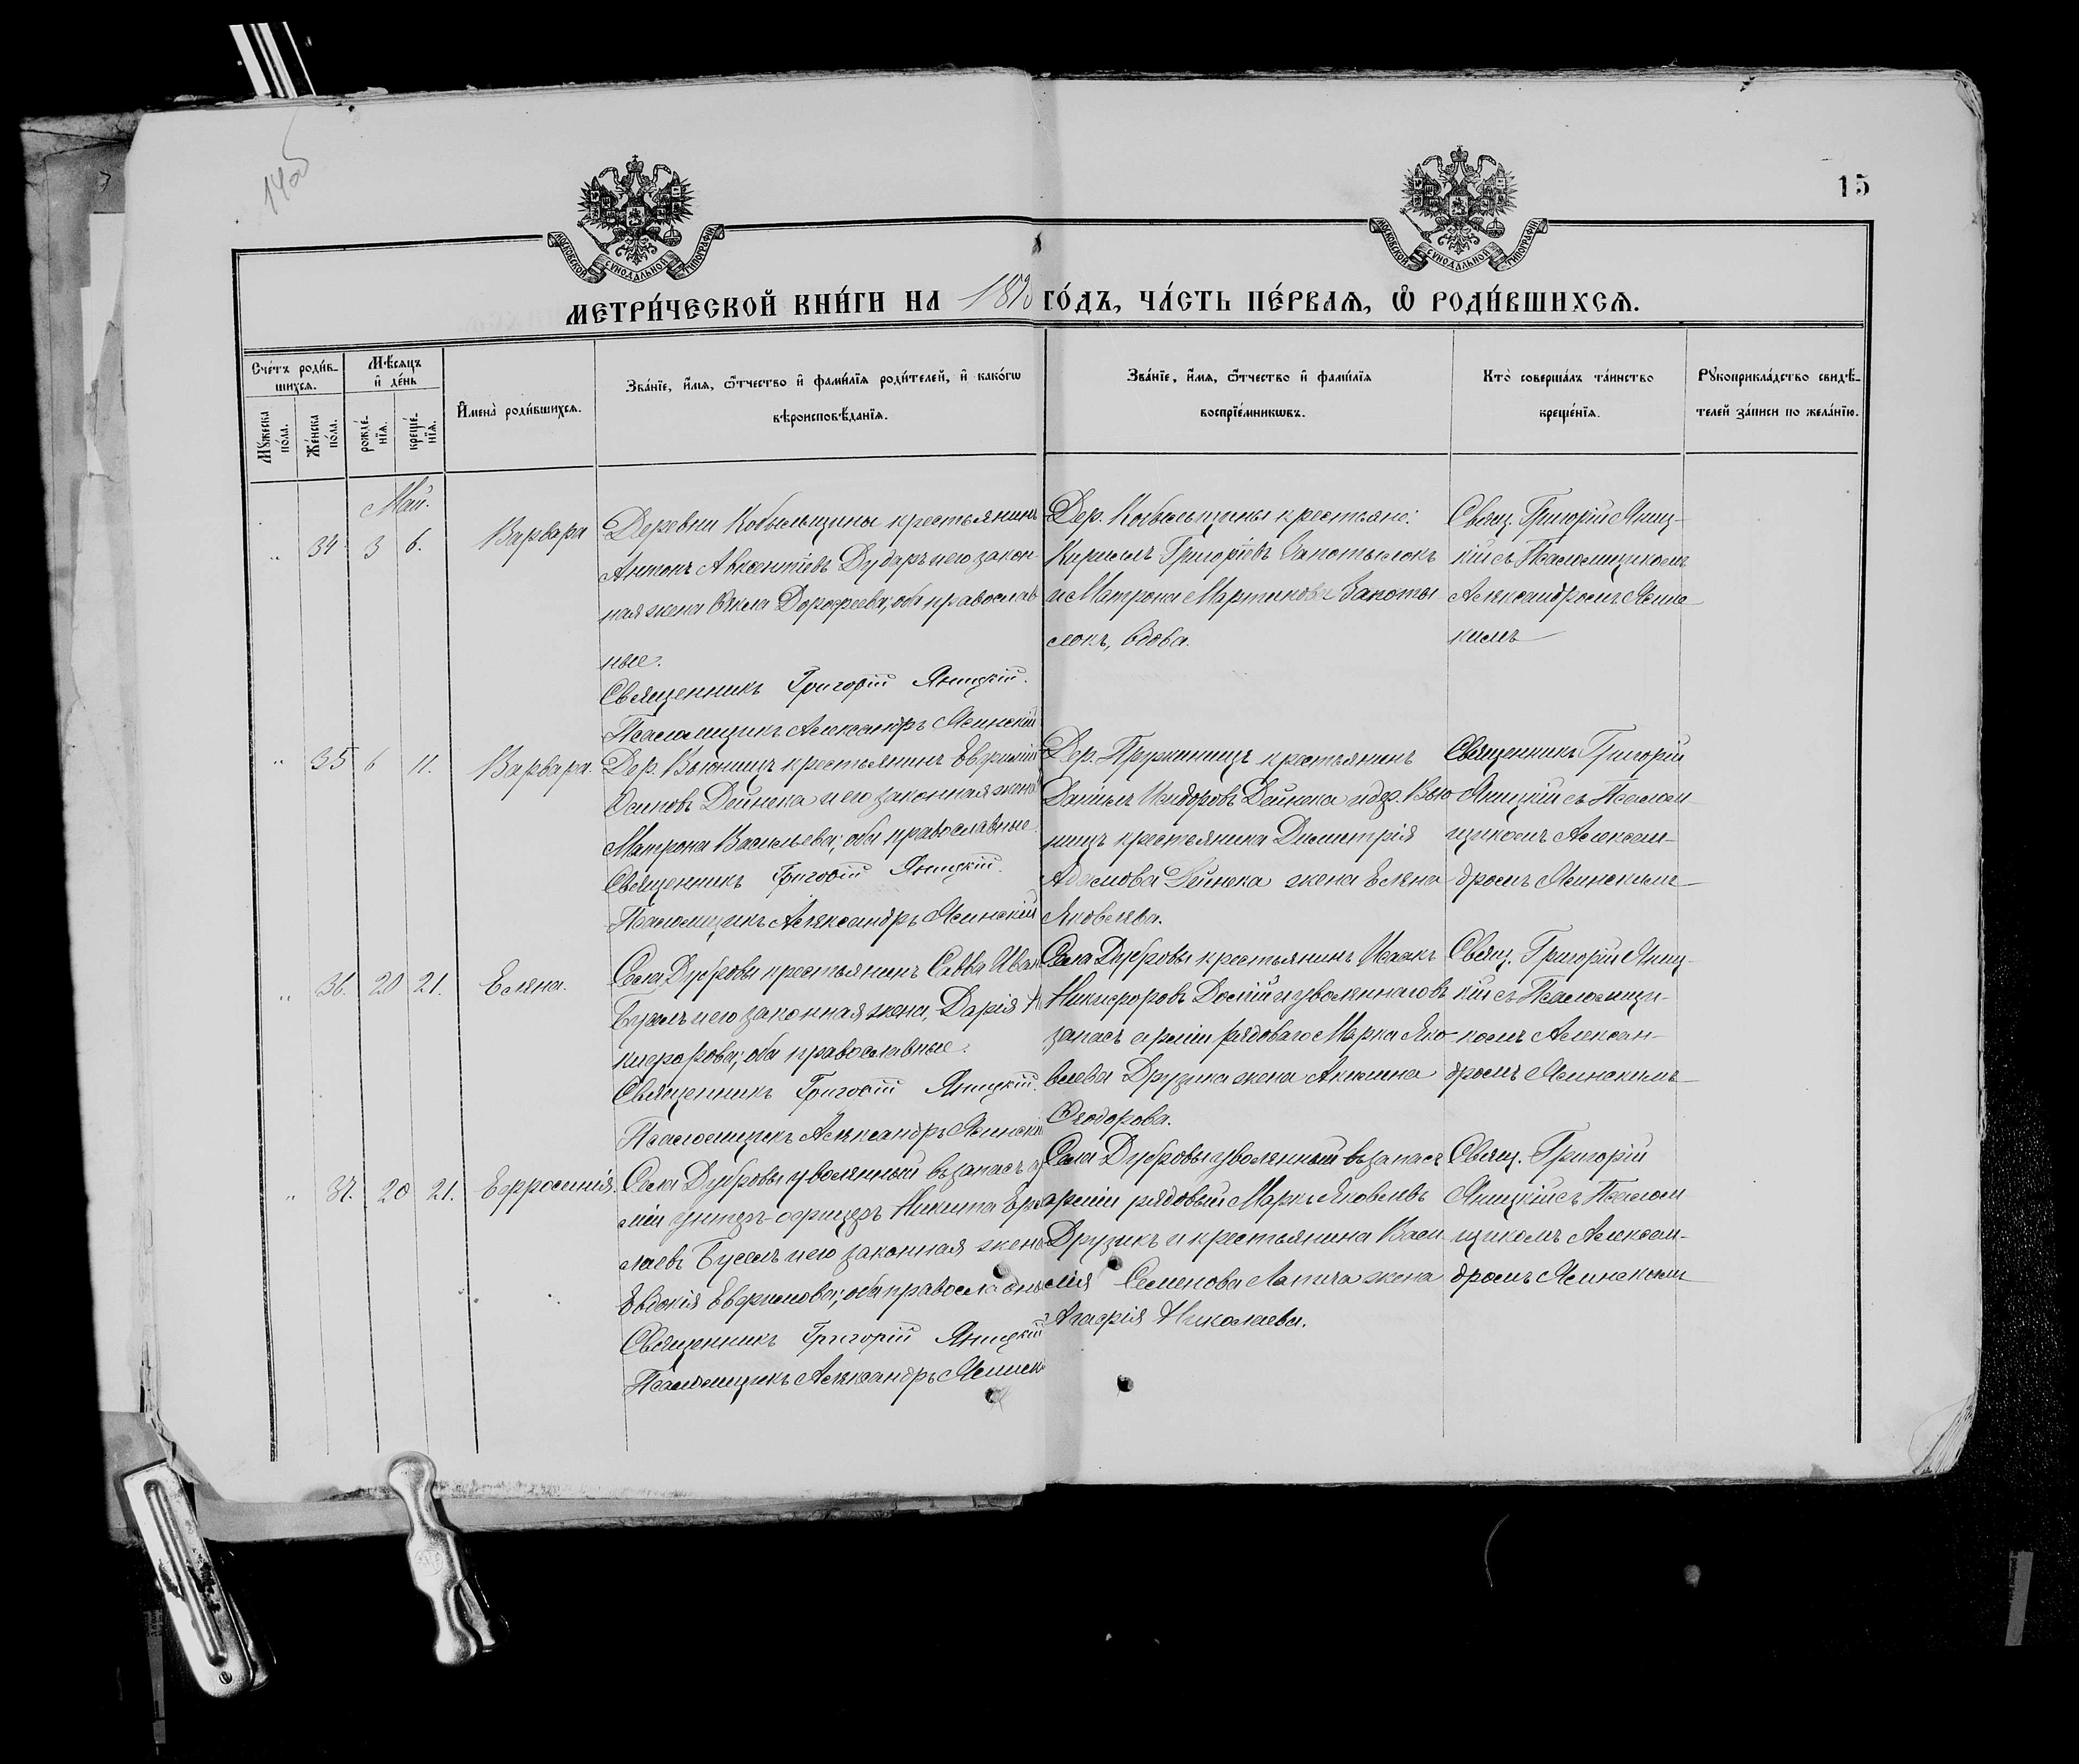 14об
15
МОСКОВСКОЙ СѴНОДАЛЬНОЙ ТИПОГРАФІИ
МОСКОВСКОЙ СѴНОДАЛЬНОЙ ТИПОГРАФІИ
МЕТРИ́ЧЕСКОЙ КНИ́ГИ НА
ГО́ДЪ, ЧА́СТЬ ПЕ́РВАѦ, Ѿ РОДИ́ВШИХСѦ.
Сче́тъ роди́в-
шихсѧ.
Мꙋжеска по́ла.
Же́нска по́ла.
Мѣ́сѧцъ
и҆ де́нь
рожде-
нїѧ.
креще́-
нїѧ.
И҆мена̀ роди́вшихсѧ.
Зва́нїе, и҆́мѧ, ѻ҆́тчество и҆ фами́лїѧ роди́телей, и҆ како́гѡ
вѣроисповѣ́данїѧ.
Зва́нїе, и҆́мѧ, ѻ҆́тчество и҆ фами́лїѧ
воспрїе́мникѡвъ.
Кто̀ соверша́лъ та́инство
креще́нїѧ.
Рꙋкоприкла́дство свидѣ́-
телей за́писи по жела́нїю.
Май.
„ 34 3 6. Варвара
Деревни Кобыльщины крестьянинъ
Антонъ Авксентіевъ Дударъ и его закон-
ная жена Ѳекла Дорофеева, оба православ
ные.
Священникъ Григорій Яницкій.
Псаломщикъ Александръ Ясинскій
Дер. Кобыльщины крестьяне:
Кириллъ Григоріевъ Запотылокъ
и Матрона Мартинова Запоты
локъ, вдова.
Свящ. Григорій Яниц-
кій съ Псаломщикомъ
Александромъ Ясинс
кимъ
„ 35 6 11. Варвара.
Дер. Вьюнищъ крестьянинъ Евфимій
Осиповъ Дейнека и его законная жена
Матрона Васильева, оба православные.
Священникъ Григорій Яницкій.
Псаломщикъ Александръ Ясинскій
Дер. Пружинищъ крестьянинъ
Даніилъ Исидоровъ Дейнека и дер. Вью
нищъ крестьянина Димитрія
Адамова Дейнека жена Елена
Яковлева.
Священникъ Григорій
Яницкій съ Псалом
щикомъ Алексан-
дромъ Ясинскимъ
„ 36. 20 21. Елена.
Села Дубровы крестьянинъ Савва Иван
Буселъ и его законная жена, Дарія Н
кифорова, оба православные.
Священникъ Григорій Яницкій.
Псаломщикъ Александръ Ясински
Села Дубровы крестьянинъ Исаакъ
Никифоровъ и уволеннаго въ
запасъ арміи рядоваго Марка Яко-
влева Друзика жена Акилина
Ѳеодорова.
Свящ. Григорій Яниц-
кій съ Псаломщи-
комъ Алексан-
дромъ Ясинскимъ
„ 37. 20 21. Евфросинія.
Села Дубровы уволенный въ запасъ
міи унтеръ-офицеръ Никита
лаевъ Буселъ и его законная жена
Евдокія Евфимова, оба православны
Священникъ Григорій Яницкій
Псаломщикъ Александръ Ясинск
Села Дубровы уволенный въ запасъ
арміи рядовый Маркъ Яковлевъ
Друзикъ и крестьянина Васи
лія Семенова Лапича жена
Агафія Николаева.
Свящ. Григорій
Яницкій съ Псалом
щикомъ Алексан-
дромъ Ясинскимъ